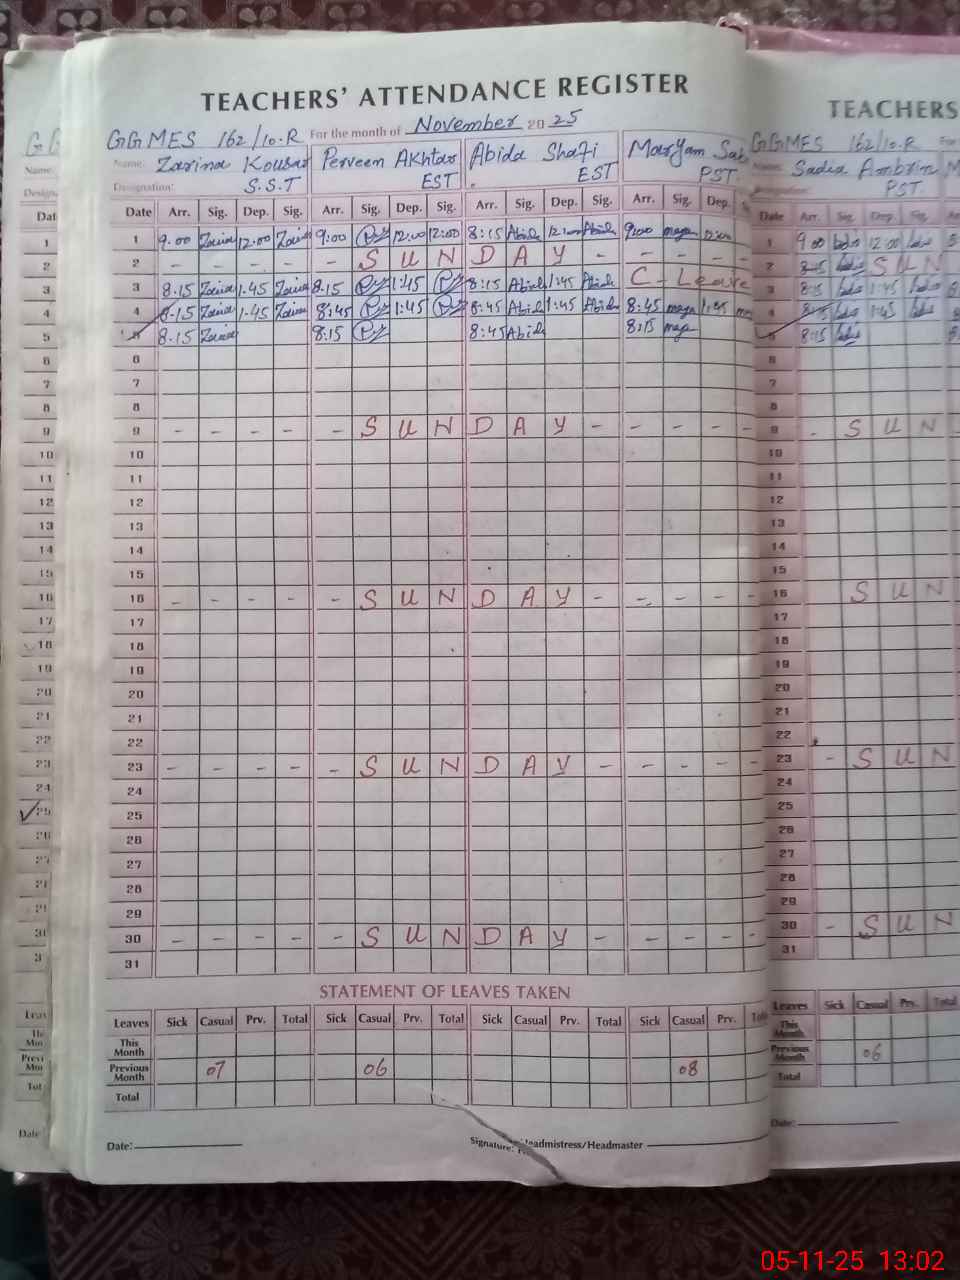 TEACHERS' ATTENDANCE REGISTER
GGMES 162/10.R For the month of November 2025
Name: Zarina Kousar Perveen Akhtar Abida Shafi Maryam Sab
Designation: S.S.T EST EST PST.
Date Arr. Sig. Dep. Sig. Arr. Sig. Dep. Sig. Arr. Sig. Dep. Sig. Arr. Sig. Dep.
1 9.00 Zarina 12:00 Zarina 9:00 12:00 12:00 8:15 Abida 12:00 Abida 9:00
2 - - - - - S U N D A Y - - - -
3 8.15 Zarina 1.45 Zarina 8:15 1:45 8:15 Abida 1:45 Abida C - Leave
4 8.15 Zarina 1.45 Zarina 8:45 1:45 8:45 Abida 1:45 Abida 8:45 1:45
5 8.15 Zarina 8:15 8:45 Abida 8:15
6
7
8
9 - - - - - S U N D A Y - - - - -
10
11
12
13
14
15
16 - - - - - S U N D A Y - - - - -
17
18
19
20
21
22
23 - - - - - S U N D A Y - - - - -
24
25
26
27
28
29
30 - - - - - S U N D A Y - - - - -
31
STATEMENT OF LEAVES TAKEN
Leaves Sick Casual Prv. Total Sick Casual Prv. Total Sick Casual Prv. Total Sick Casual Prv.
This Month
Previous Month 07 06 08
Total
Date: Signature: Headmistress/Headmaster
TEACHERS
GGMES 162/10.R
Sadia Ambrin
PST.
Date Arr. Sig. Dep. Sig.
1 9.00 12:00
2 8:15 S U N
3 8:15 1:45
4 8:15 1:45
5 8:15
6
7
8
9 - S U N
10
11
12
13
14
15
16 S U N
17
18
19
20
21
22
23 - S U N
24
25
26
27
28
29
30 - S U N
31
Leaves Sick Casual Prv. Total
This Month
Previous Month 06
Total
Date:
05-11-25 13:02